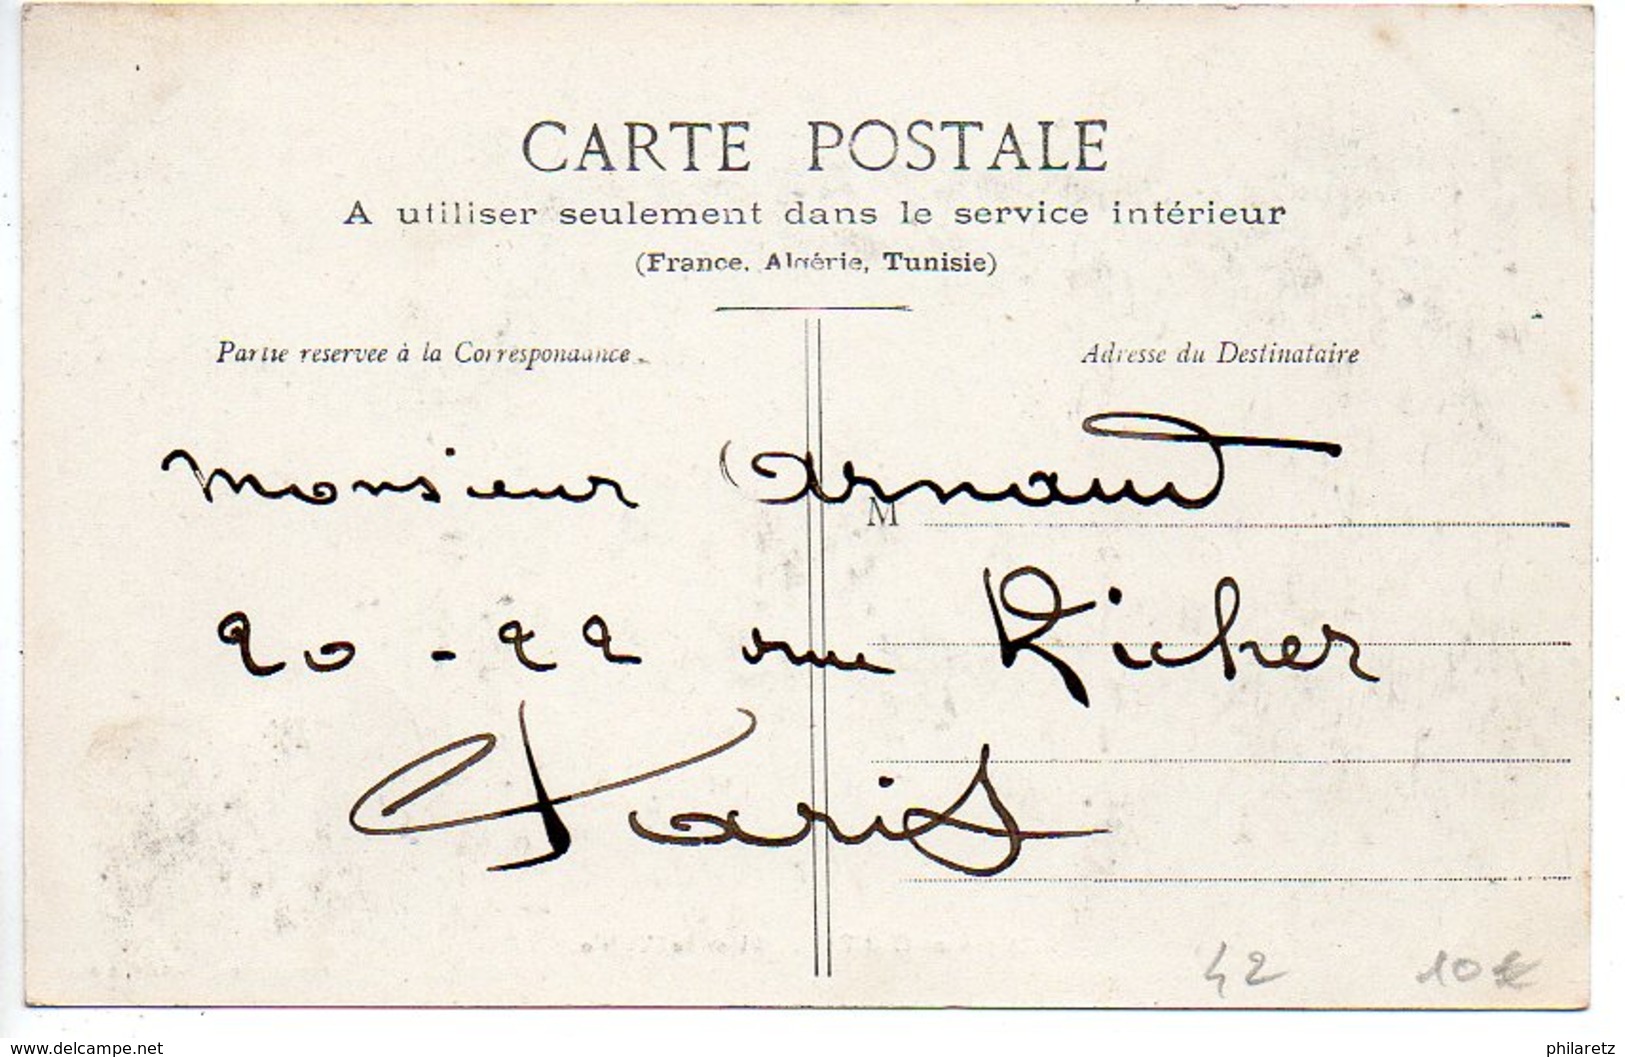 CARTE POSTALE
A utiliser seulement dans le service intérieur
(France, Algérie, Tunisie)
Partie réservée à la Correspondance
Adresse du Destinataire
Monsieur Arnaud
M
20-22 rue Richer
Paris
42
10€
www.delcampe.net
philaretz